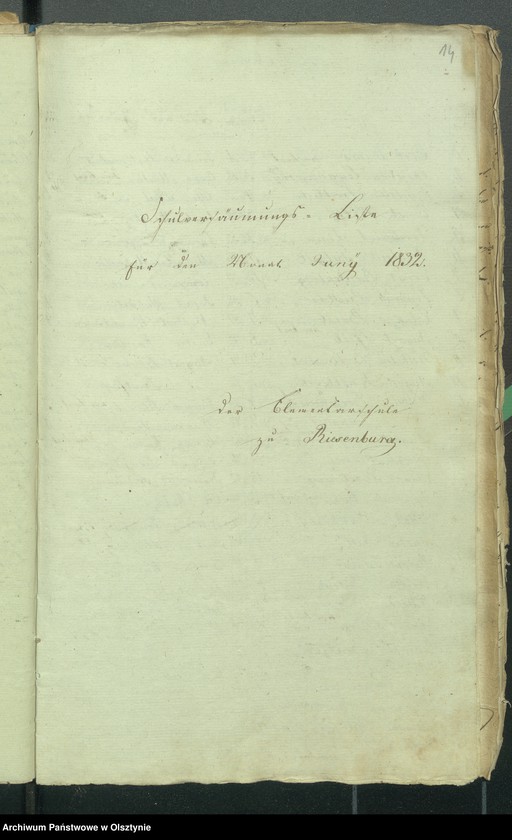 14
Schulversäumungs-Liste
für den Monat Juny 1832.
der Elementarschule
zu Riesenburg.
Archiwum Państwowe w Olsztynie